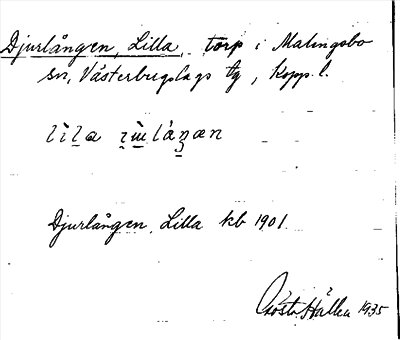 Djurlången, Lilla, torp i Malingsbo
sn, Västerbergslags tg, Kopp. l.
Djurlången, Lilla kb 1901.
Gösta Hallén 1935